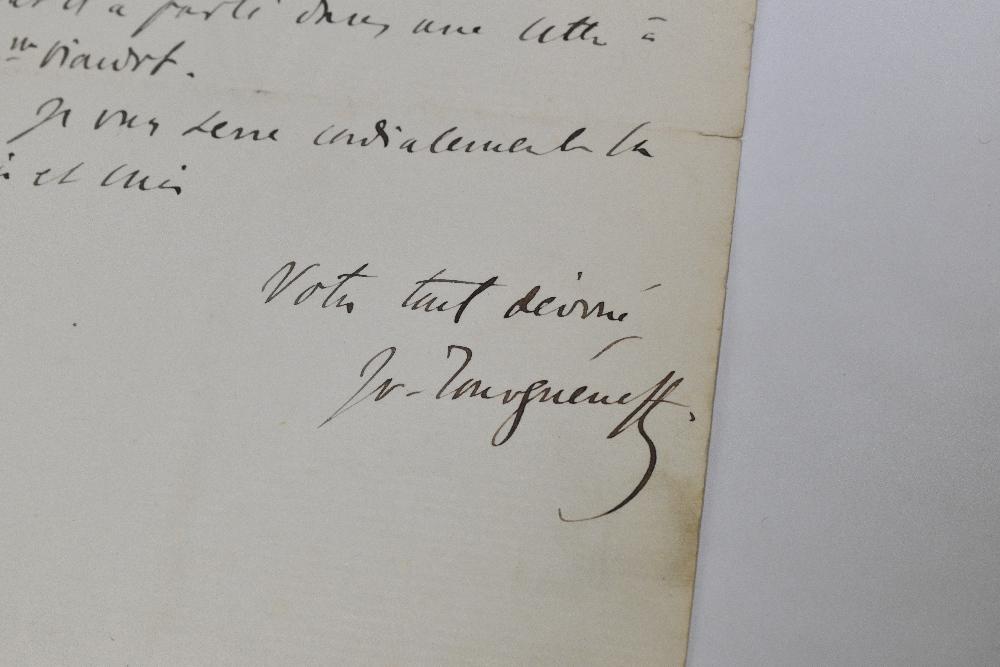 a parlé dans une lettre à
Mme Viardot.
Je vous serre cordialement la
et suis
Votre tout dévoué
Iv. Tourguéneff